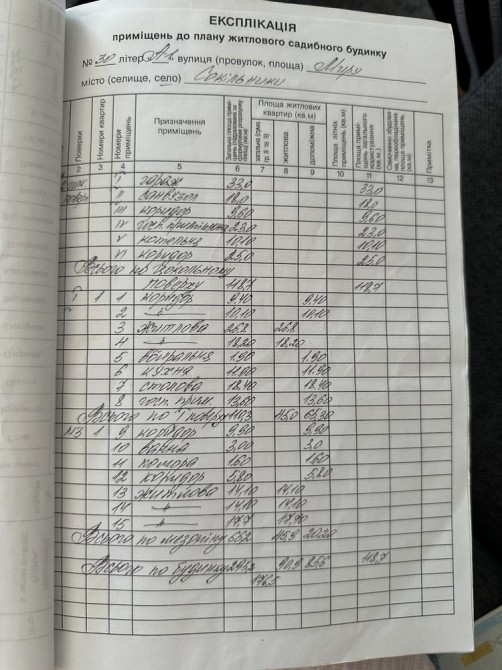 ЕКСПЛІКАЦІЯ
приміщень до плану житлового садибного будинку
№ 30 літер А-1 вулиця (провулок, площа) Миру
місто (селище, село) Сокільники
Поверхи Номери квартир Номери приміщень Призначення приміщень Площа житлових квартир (кв.м) загальна (сума гр. 8 та 9) житлова допоміжна Площа літніх приміщень (кв.м) Площа приміщень загального користування (кв.м) Примітка
2 3 4 5 6 7 8 9 10 11 12 13
I гараж 33,0 33,0
II санвузол 18,0 18,0
III коридор 9,60 9,60
IV госп. приміщення 23,0 23,0
V котельня 10,10 10,10
VI коридор 25,0 25,0
Всього по цокольному
поверху 118,7 118,7
I 1 1 коридор 9,40 9,40
2 —"— 10,10 10,10
3 житлова 26,8 26,8
4 —"— 18,20 18,20
5 вбиральня 1,90 1,90
6 кухня 11,90 11,90
7 столова 18,40 18,40
8 госп. прим. 13,60 13,60
Всього по I поверху 110,3 45,0 65,30
МЗ 1 9 коридор 9,90 9,90
10 ванна 3,00 3,0
11 комора 1,60 1,60
12 коридор 5,80 5,80
13 житлова 14,10 14,10
14 —"— 14,10 14,10
15 —"— 17,7 17,70
Всього по мезоніну 66,2 45,9 20,20
Всього по будинку 90,9 85,6 118,7
176,5